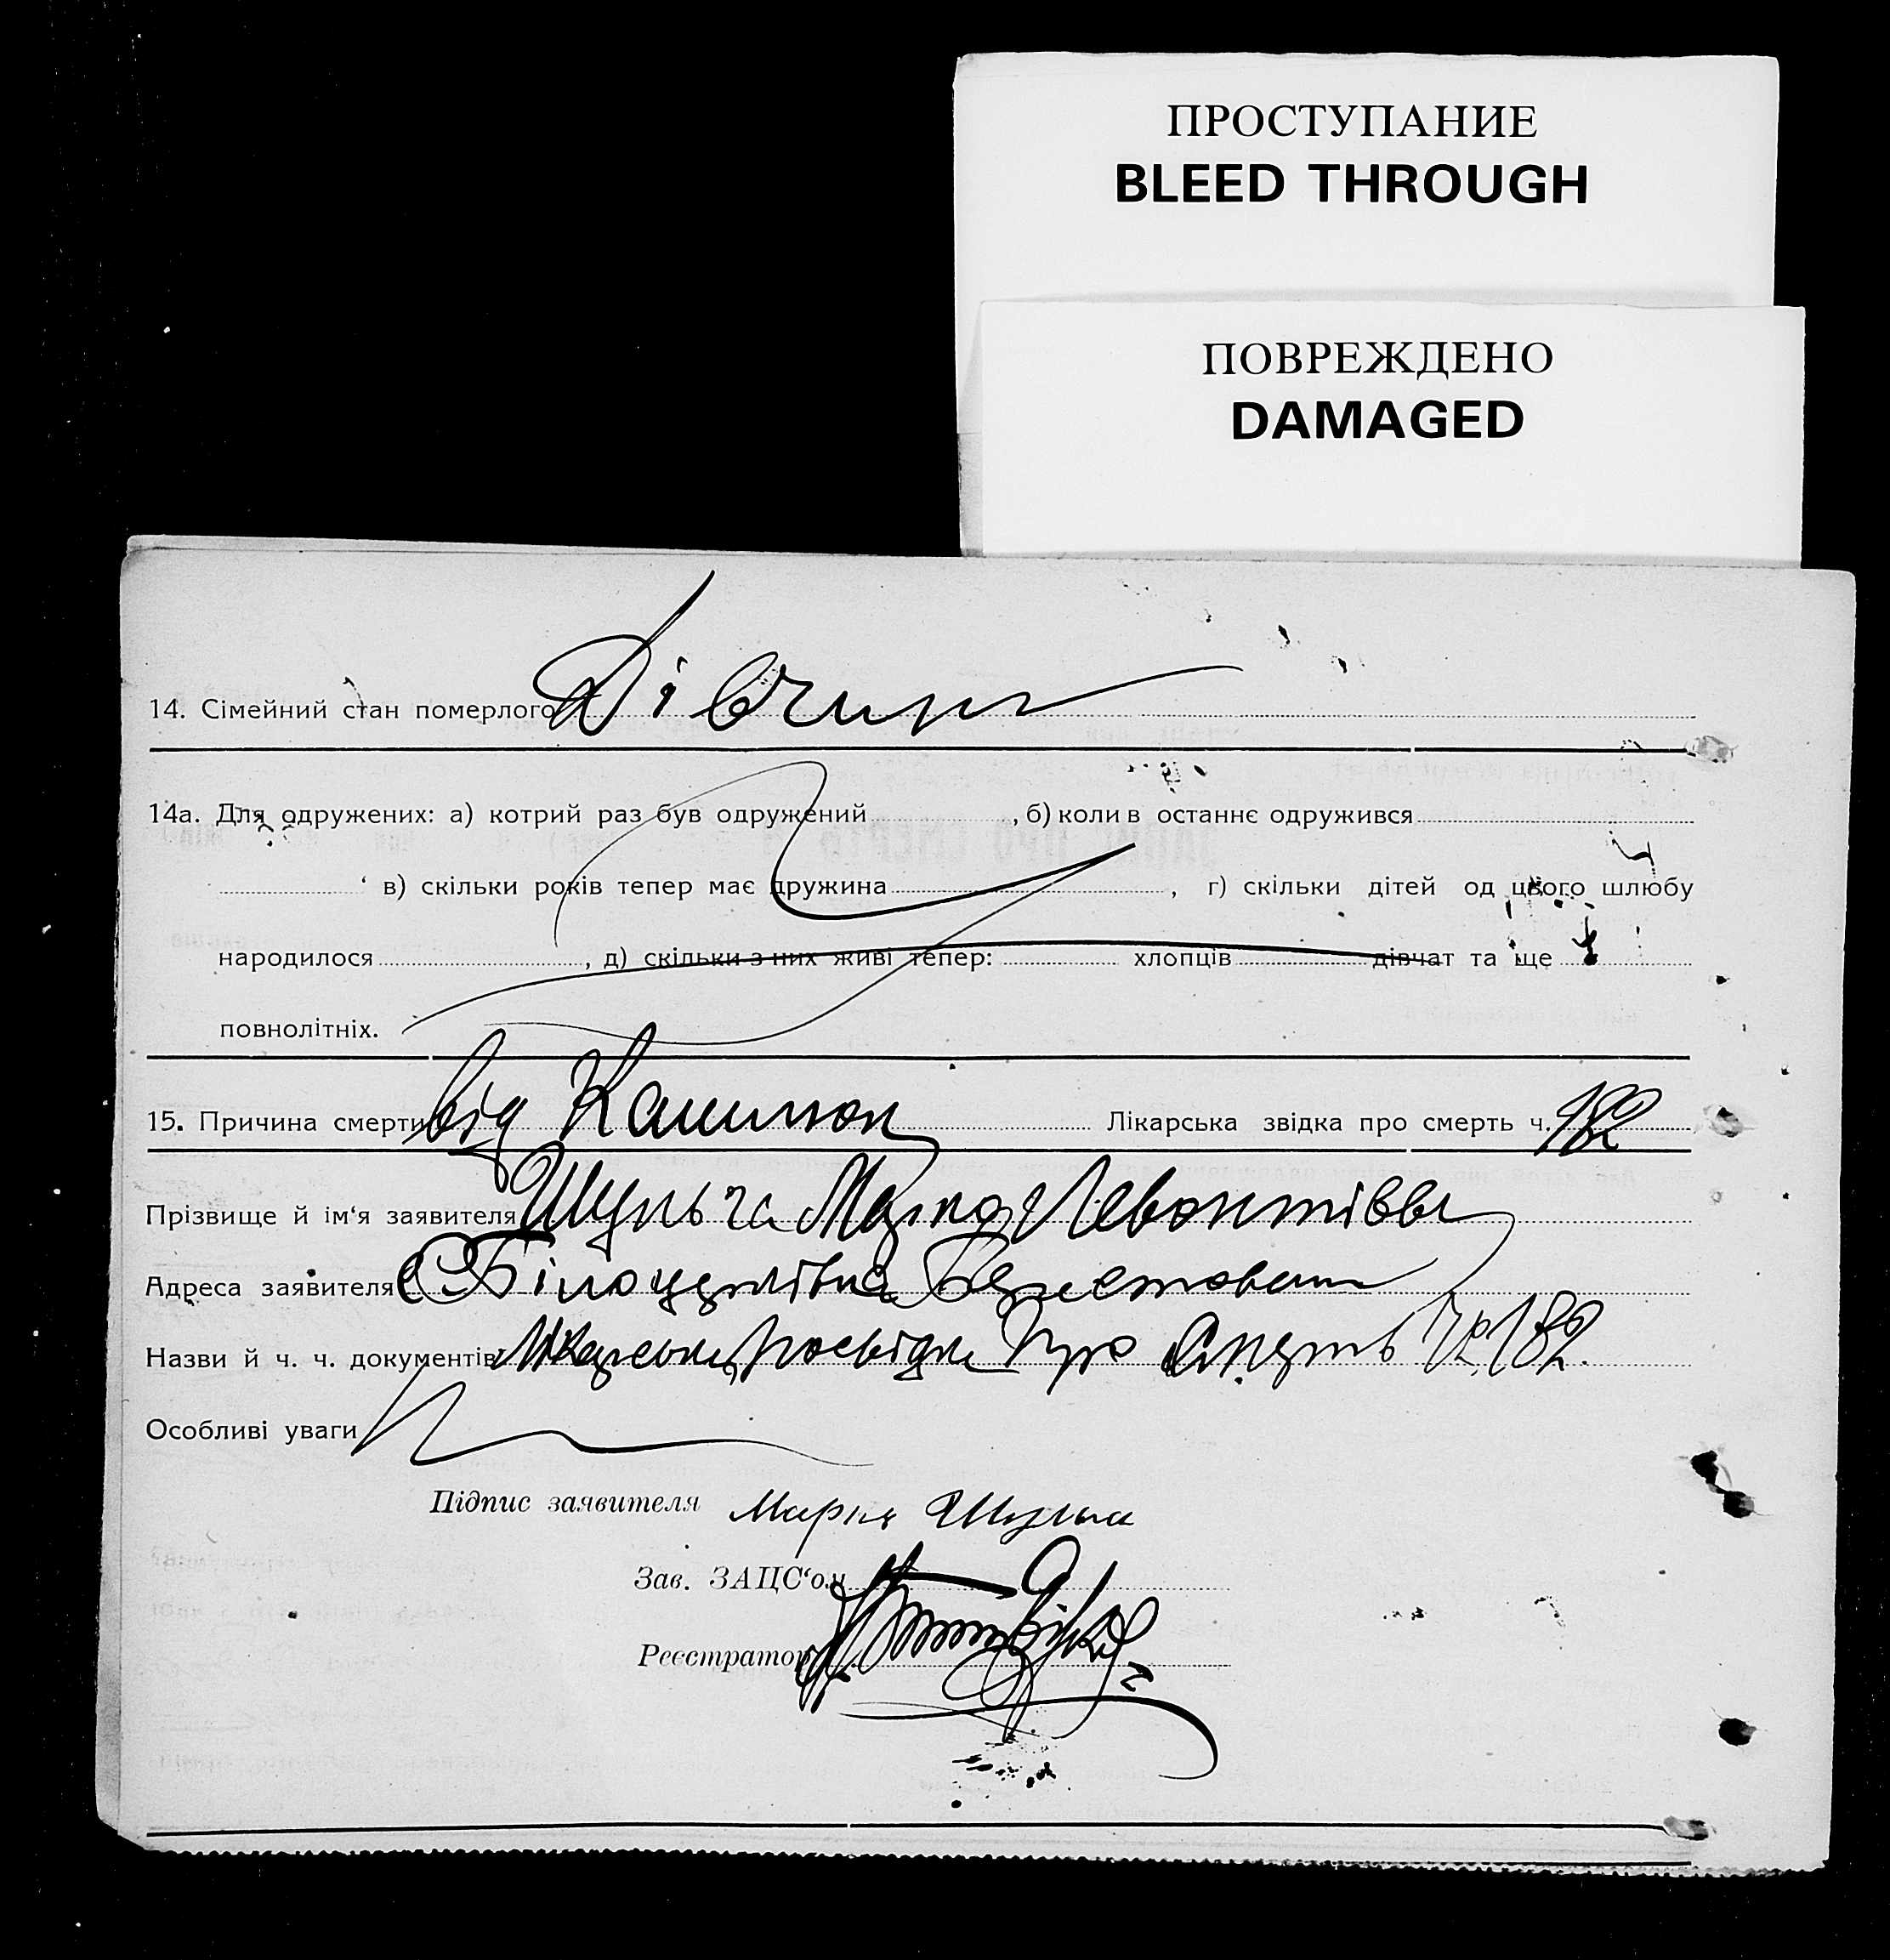 ПРОСТУПАНИЕ
BLEED THROUGH
ПОВРЕЖДЕНО
DAMAGED
14. Сімейний стан померлого Дівчина
14а. Для одружених: а) котрий раз був одружений , б) коли в останнє одружився
в) скільки років тепер має дружина , г) скільки дітей од цього шлюбу
народилося , д) скільки з них живі тепер: хлопців дівчат та ще
повнолітніх.
15. Причина смерти від Лікарська звідка про смерть ч. 182
Прізвище й ім'я заявителя Шульга Левонтіввы
Адреса заявителя С
Назви й ч. ч. документів Лікарська посвідка про смерть № 182.
Особливі уваги
Підпис заявителя Мария Шульга
Зав. ЗАЦС'ом
Реєстратор